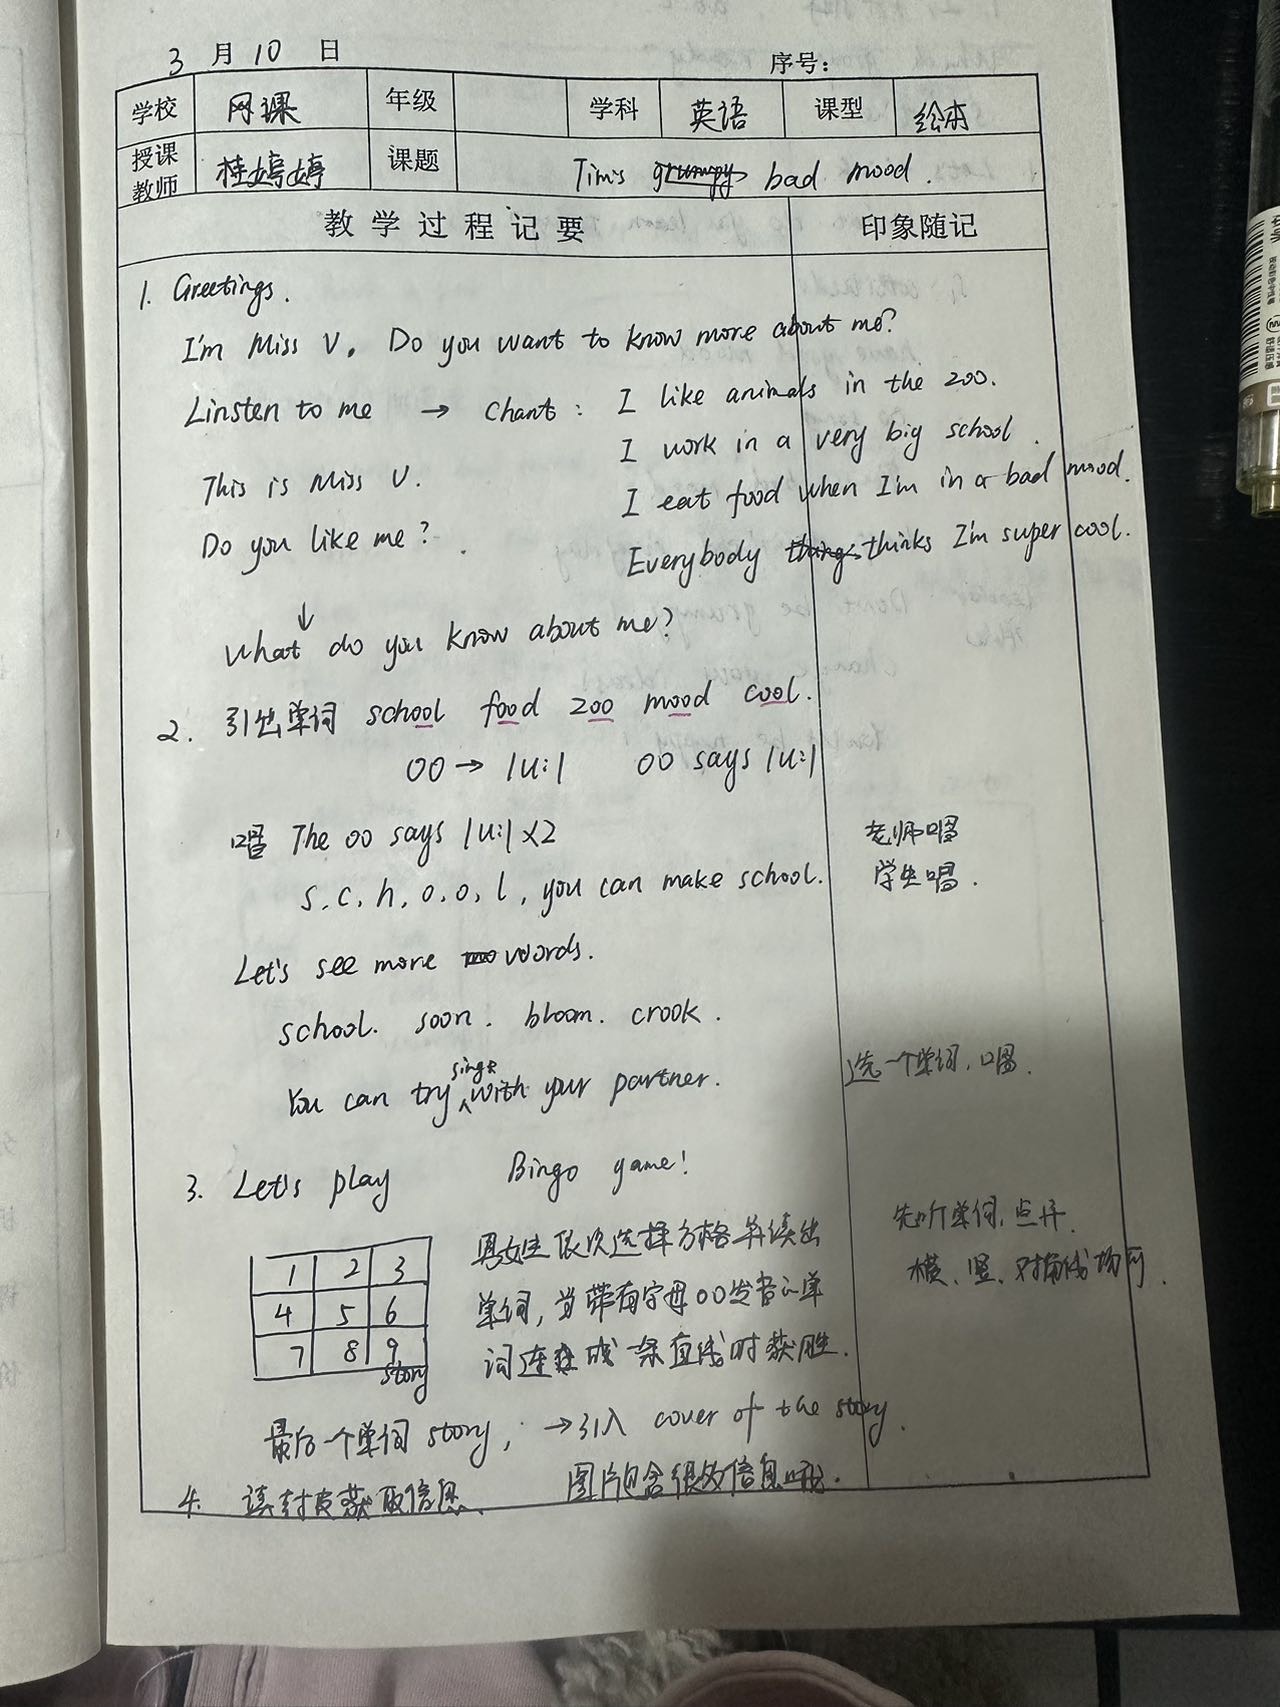 3 月 10 日 序号：
学校 网课 年级 学科 英语 课型 绘本
授课教师 桂婷婷 课题 Tim's grumpy bad mood.
教学过程记要 印象随记
1. Greetings.
I'm Miss V. Do you want to know more about me?
Linsten to me → chant: I like animals in the zoo.
I work in a very big school.
This is Miss V.
I eat food when I'm in a bad mood.
Do you like me?
Everybody things thinks I'm super cool.
↓
What do you know about me?
2. 引出单词 school food zoo mood cool.
oo → /u:/ oo says /u:/
唱 The oo says /u:/ x2 老师唱
s, c, h, o, o, l, you can make school. 学生唱.
Let's see more words.
school. soon. bloom. crook.
You can try sing with your partner. 选一个单词, 唱.
3. Let's play Bingo game!
1 2 3
4 5 6
7 8 9
story
男女生依次选择方格并读出
单词, 当带有字母oo发音的单
词连成一条直线时获胜.
先听单词, 点开.
横、竖、对角线均可.
最后一个单词 story, → 引入 cover of the story.
4. 读封皮获取信息、 图片包含很多信息哦.